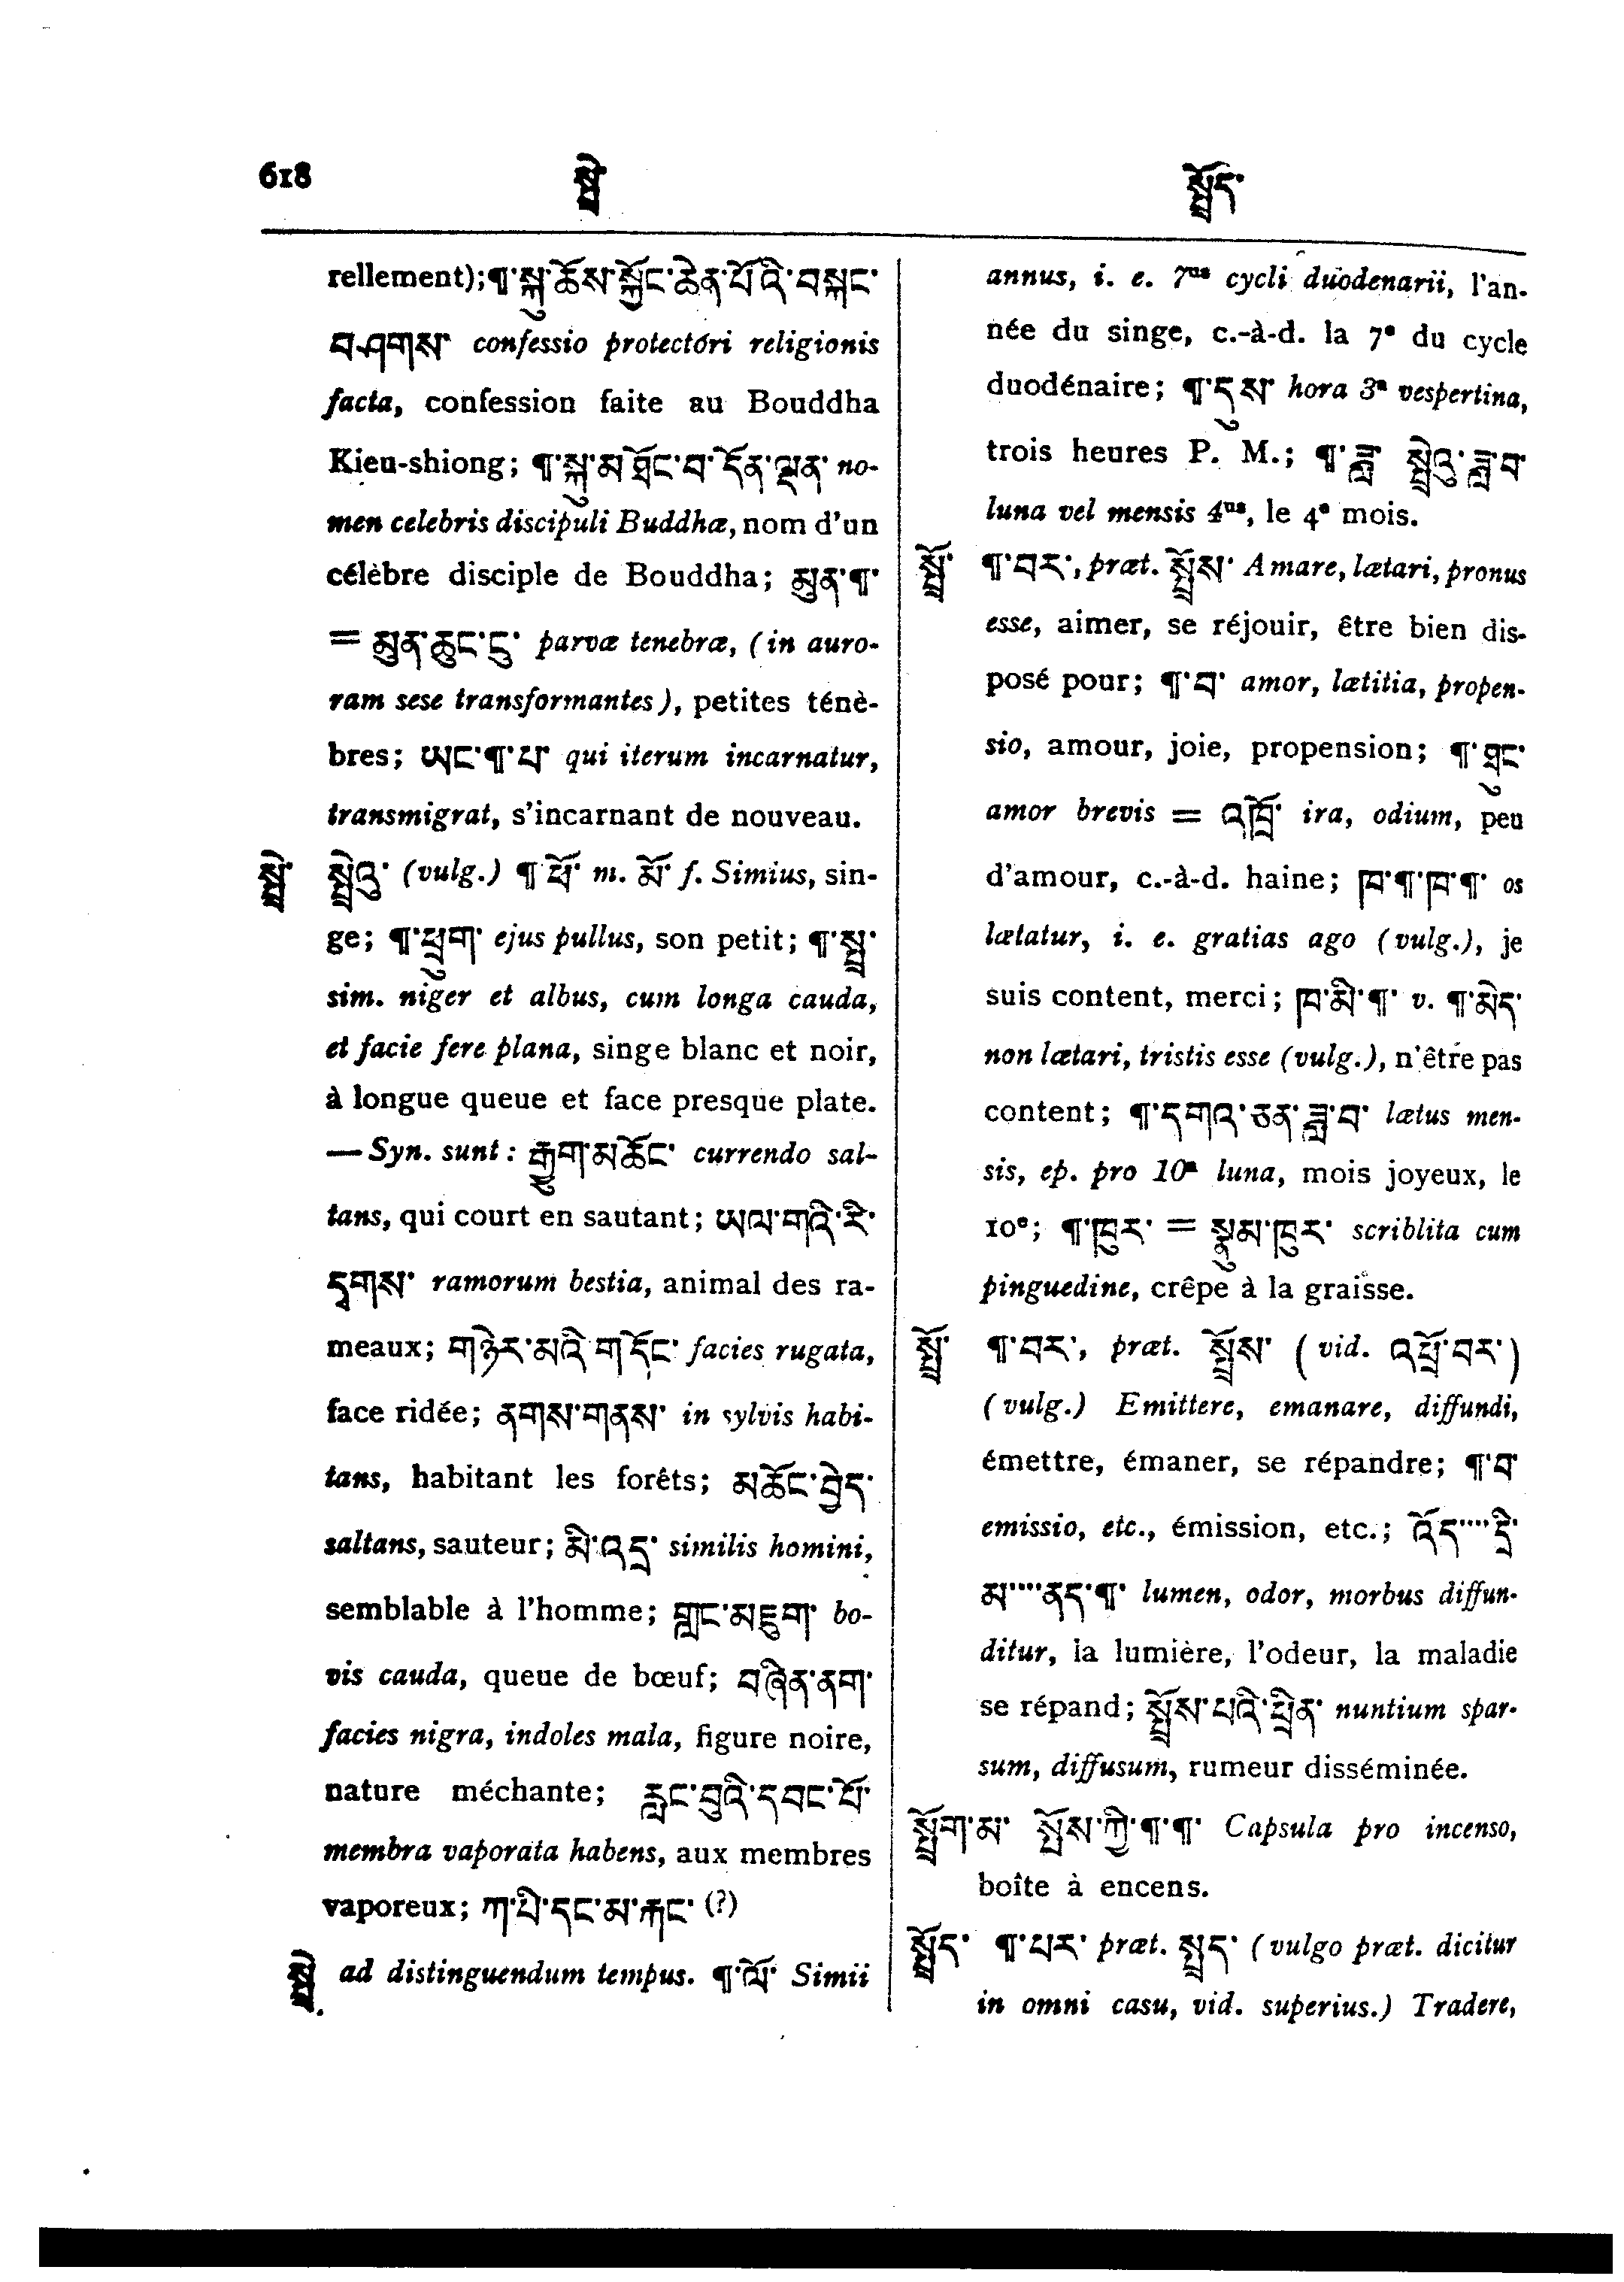 618 སྤྲེ་ སྤྲོད་
rellement); ¶་སྐུ་ཆོས་སྐྱོང་ཆེན་པོའི་བསྐང་
བ་ཤགས་ confessio protectóri religionis
facta, confession faite au Bouddha
Kieu-shiong; ¶་སྐུ་མ་ཐོང་བ་དོན་ལྡན་ no-
men celebris discipuli Buddhæ, nom d'un
célèbre disciple de Bouddha; མུན་¶་
= མུན་ཆུང་ངུ་ parvæ tenebræ, (in auro-
ram sese transformantes), petites ténè-
bres; ཡང་¶་པ་ qui iterum incarnatur,
transmigrat, s'incarnant de nouveau.
སྤྲེ་ སྤྲེའུ་ (vulg.) ¶་ཕོ་ m. མོ་ f. Simius, sin-
ge; ¶་ཕྲུག་ ejus pullus, son petit; ¶་སྤྲ་
sim. niger et albus, cum longa cauda,
et facie fere plana, singe blanc et noir,
à longue queue et face presque plate.
— Syn. sunt: རྒྱུག་མཆོང་ currendo sal-
tans, qui court en sautant; ཡལ་གའི་རི་
དྭགས་ ramorum bestia, animal des ra-
meaux; གཉེར་མའི་གདོང་ facies rugata,
face ridée; ནགས་གནས་ in sylvis habi-
tans, habitant les forêts; མཆོང་བྱེད་
saltans, sauteur; མི་འདྲ་ similis homini,
semblable à l'homme; གླང་མཇུག་ bo-
vis cauda, queue de bœuf; བཞིན་ནག་
facies nigra, indoles mala, figure noire,
nature méchante; རླང་བུའི་དབང་པོ་
membra vaporata habens, aux membres
vaporeux; ཀ་པི་དང་མ་རྐང་ (?)
སྤྲེ་ ad distinguendum tempus. ¶་ལོ་ Simii
annus, i. e. 7us cycli duodenarii, l'an-
née du singe, c.-à-d. la 7e du cycle
duodénaire; ¶་དུས་ hora 3a vespertina,
trois heures P. M.; ¶་ཟླ་ སྤྲེའུ་ཟླ་བ་
luna vel mensis 4us, le 4e mois.
སྤྲོ་ ¶་བར་, præt. སྤྲོས་ Amare, lætari, pronus
esse, aimer, se réjouir, être bien dis-
posé pour; ¶་བ་ amor, lætitia, propen-
sio, amour, joie, propension; ¶་ཐུང་
amor brevis = འཁྲོ་ ira, odium, peu
d'amour, c.-à-d. haine; ཁ་¶་ཁ་¶་ os
lætatur, i. e. gratias ago (vulg.), je
suis content, merci; ཁ་མི་¶་ v. ¶་མེད་
non lætari, tristis esse (vulg.), n'être pas
content; ¶་དགའ་ཅན་ཟླ་བ་ lætus men-
sis, ep. pro 10a luna, mois joyeux, le
10e; ¶་ཁུར་ = སྣུམ་ཁུར་ scriblita cum
pinguedine, crêpe à la graisse.
སྤྲོ་ ¶་བར་, præt. སྤྲོས་ (vid. འཕྲོ་བར་)
(vulg.) Emittere, emanare, diffundi,
émettre, émaner, se répandre; ¶་བ་
emissio, etc., émission, etc.; འོད་····དྲི་
མ་····ནད་¶་ lumen, odor, morbus diffun-
ditur, la lumière, l'odeur, la maladie
se répand; སྤྲོས་པའི་ཕྲིན་ nuntium spar-
sum, diffusum, rumeur disséminée.
སྤྲོག་མ་ སྤོས་ཀྱི་¶་¶་ Capsula pro incenso,
boîte à encens.
སྤྲོད་ ¶་པར་ præt. སྤྲད་ (vulgo præt. dicitur
in omni casu, vid. superius.) Tradere,